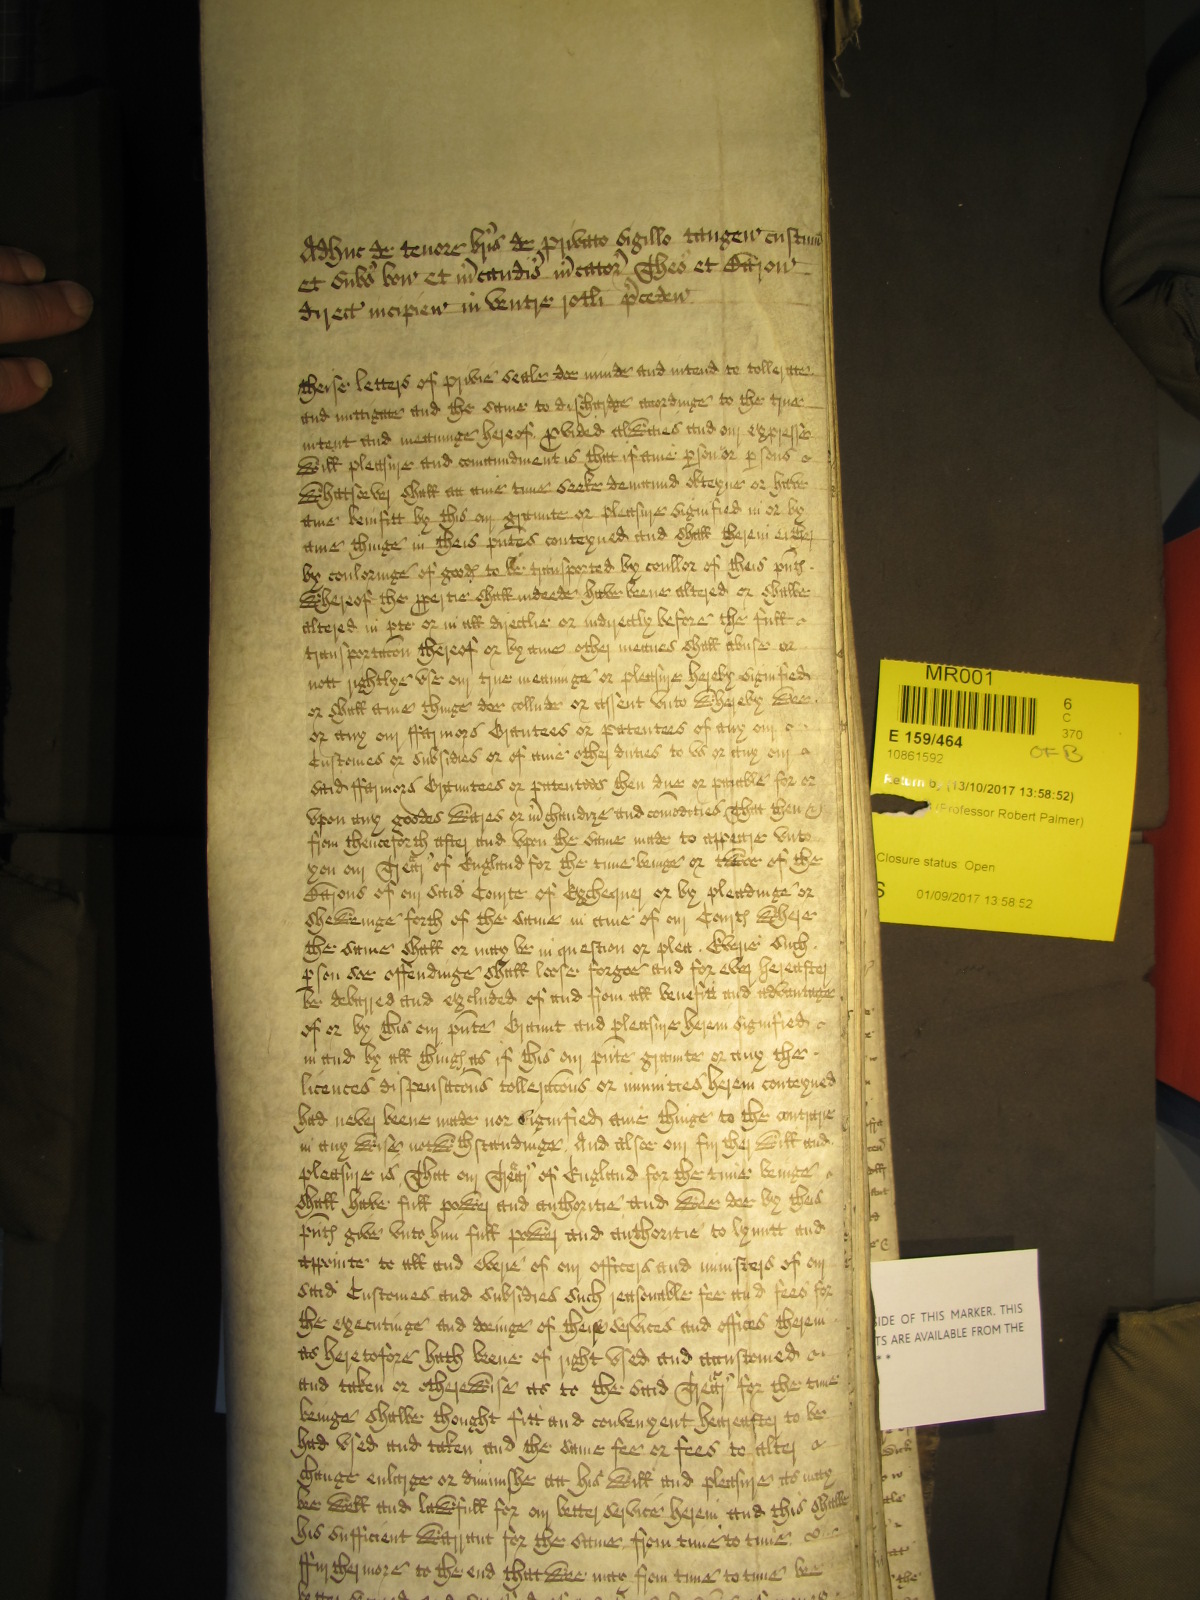 Adhuc de tenore bris de privato Sigillo tangen custum
et Subs bon et mcandis mcator Theo et Baron
direct incipien in ventre rotli pceden
theise letters of privie seale doe minde and intend to tollerate
and mittigate and the same to discharge accordinge to the true
intent and meaninge hereof pvided alwaies and our expresse
will pleasure and comaundment is that if anie pson or psons
whatsoever shall att anie time seeke demaund obteyne or have
anie benifitt by this our graunte or pleasure signified in or by
anie thinge in theis pntes conteyned and shall therein either
by couloringe of goods to be transported by coullor of theis pnts
whereof the ppertie shall indeede have beene altered or shalbe
altered in pte or in all directlie or indirectly before the full
transportacon thereof or by anie other meanes shall abuse or
nott rightlye use our true meaninge or pleasure hereby signified
or shall anie thinge doe collude or assent unto whereby wee
or any our ffarmors Grauntees or patentees of any our
Customes or Subsidies or of anie other duties to us or any our
said ffarmors Grauntees or patentees then due or paiable for or
upon any goodes wares or mchandize and comodities That then
from thenceforth after and upon the same made to appeare unto
you our Trear of England for the time beinge or twoe of the
Barons of our said Courte of Exchequer or by pleadinge or
sheweinge forth of the same in anie of our Courts where
the same shall or may be in question or plea. Everie such
pson soe offendinge shall loose forgoe and for ever hereafter
be debarred and excluded of and from all benefitt and advantage
of or by this our pnte Graunt and pleasure herein signified
in and by all things as if this our pnte graunte or any the
licences dispensacons tolleracons or immities herein conteyned
had never beene made nor signified anie thinge to the contrarie
in any wise notwthstandinge. And alsoe our further will and
pleasure is That our Trear of England for the time beinge
shall have full power and authoritie and wee doe by theis
pnts give unto him full power and authoritie to lymitt and
appointe to all and everie of our officers and ministers of our
said Customes and subsidies such reasonable fee and fees for
the executinge and doeinge of their services and offices therein
as heretofore hath beene of right used and accustomed
and taken or otherwise as to the said Trear for the time
beinge shalbe thought fitt and convenyent hereafter to be
had used and taken and the same fee or fees to alter
change enlarge or diminshe att his will and pleasure as may
bee well and lawfull for our better service herein and this shalbe
his sufficient warrant for the same from time to time
ffurthermore to the end that wee may from time to time bee
MR001
6
C
370
E 159/464
OF B
10861592
Return by (13/10/2017 13:58:52)
(Professor Robert Palmer)
Closure status: Open
S
01/09/2017 13:58:52
SIDE OF THIS MARKER. THIS
TS ARE AVAILABLE FROM THE